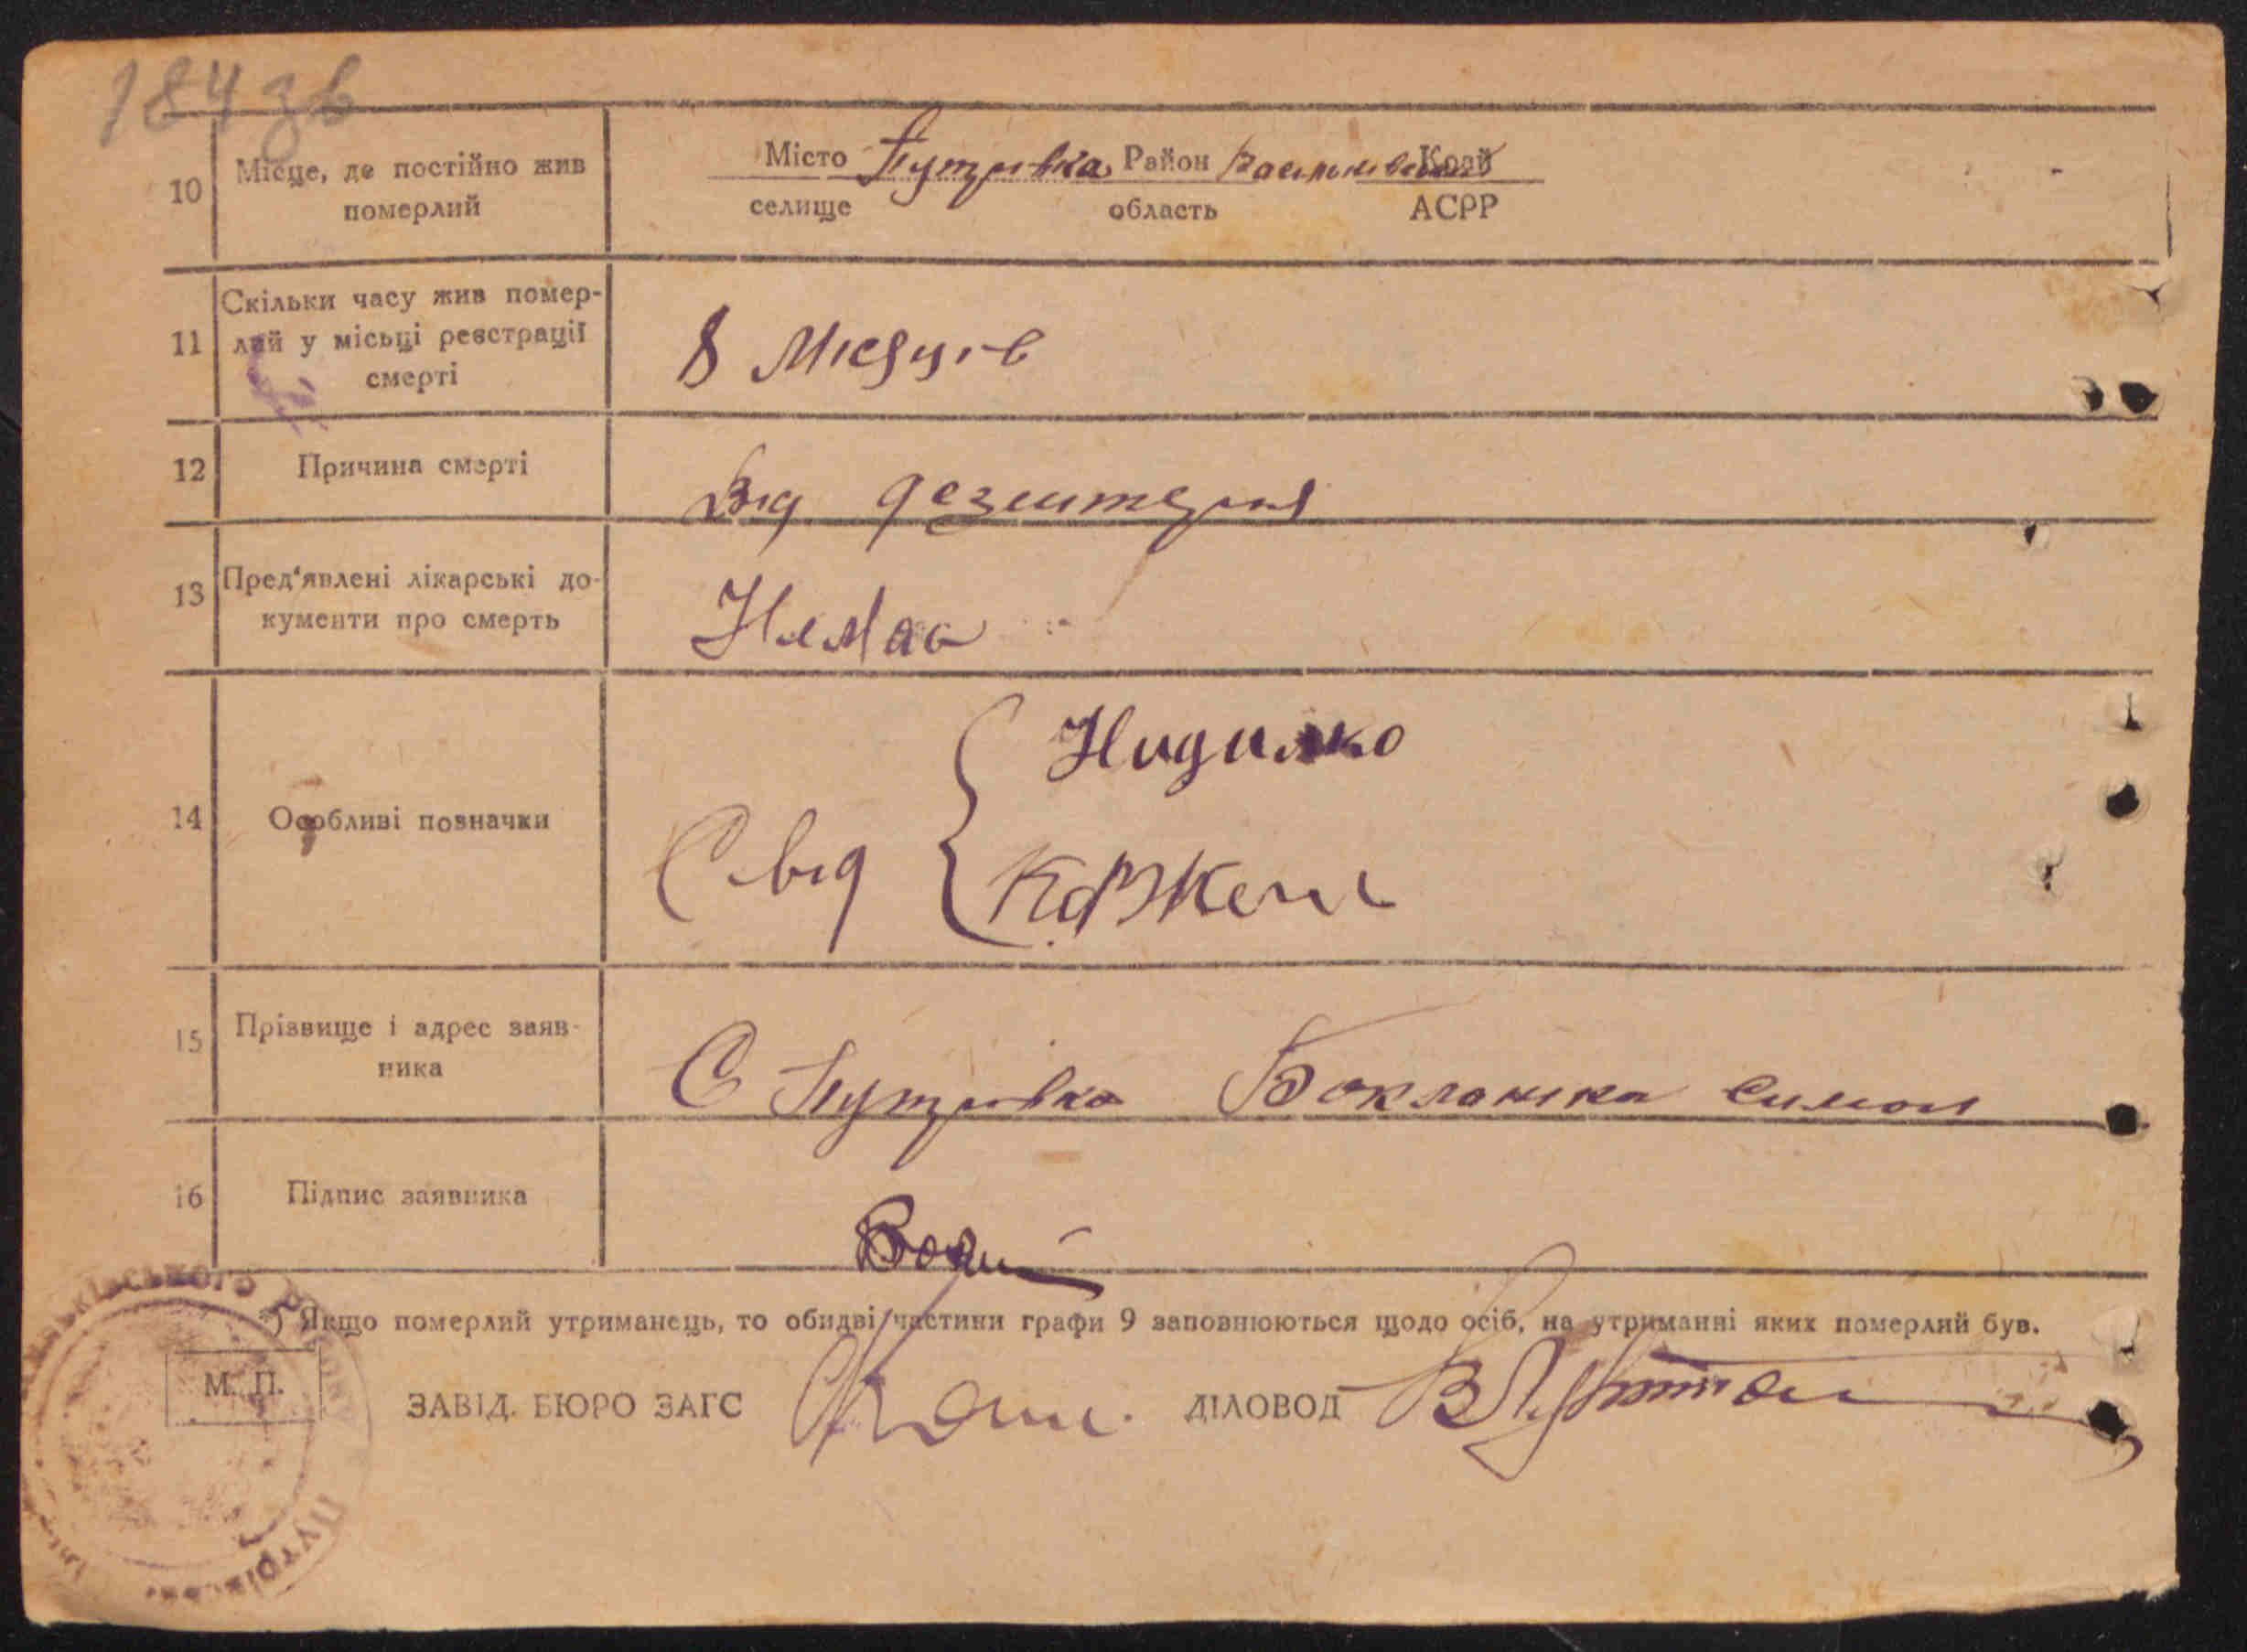 184 зв
10 Місце, де постійно жив померлий
Місто Путрівка Район Васильківський Край
селище область АСРР
11 Скільки часу жив помер-
лий у місьці реєстрації
смерті
8 Місяців
12 Причина смерті
Від дезинтерия
13 Пред'явлені лікарські до-
кументи про смерть
Немає
14 Особливі позначки
Свід { Нидилко
15 Прізвище і адрес заяв-
ника
С Путрівка Боклашка Симон
16 Підпис заявника
*) Якщо померлий утриманець, то обидві частини графи 9 заповнюються щодо осіб, на утриманні яких померлий був.
М. П.
ЗАВІД. БЮРО ЗАГС ДІЛОВОД